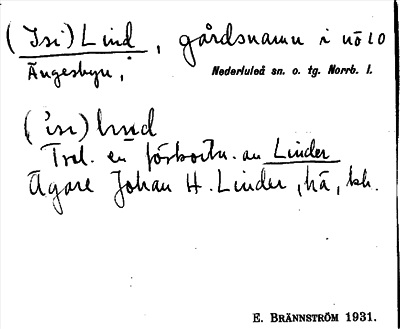 (Isi) Lind, gårdsnamn i nö 10
Ängesbyn, Nederluleå sn. o. tg. Norrb. l.
('isi) lind
Trol. en förkortn. av Linder
Ägare Johan H. Linder, hä, bh.
E. BRÄNNSTRÖM 1931.